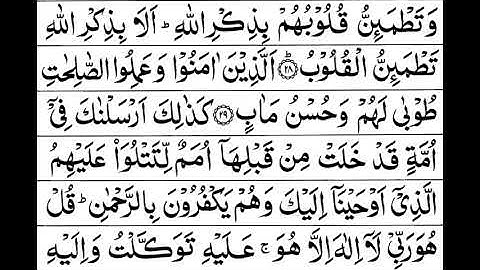 وَتَطْمَئِنُّ قُلُوْبُهُمْ بِذِكْرِ اللّٰهِ ؕ اَلَا بِذِكْرِ اللّٰهِ
تَطْمَئِنُّ الْقُلُوْبُ ؕ﴿۲۸﴾ اَلَّذِيْنَ اٰمَنُوْا وَعَمِلُوا الصّٰلِحٰتِ
طُوْبٰى لَهُمْ وَحُسْنُ مَاٰبٍ ﴿۲۹﴾ كَذٰلِكَ اَرْسَلْنٰكَ فِىْۤ
اُمَّةٍ قَدْ خَلَتْ مِنْ قَبْلِهَاۤ اُمَمٌ لِّتَتْلُوَا۟ عَلَيْهِمُ
الَّذِىْۤ اَوْحَيْنَاۤ اِلَيْكَ وَهُمْ يَكْفُرُوْنَ بِالرَّحْمٰنِ ؕ قُلْ
هُوَ رَبِّىْ لَاۤ اِلٰهَ اِلَّا هُوَ ۚ عَلَيْهِ تَوَكَّلْتُ وَاِلَيْهِ